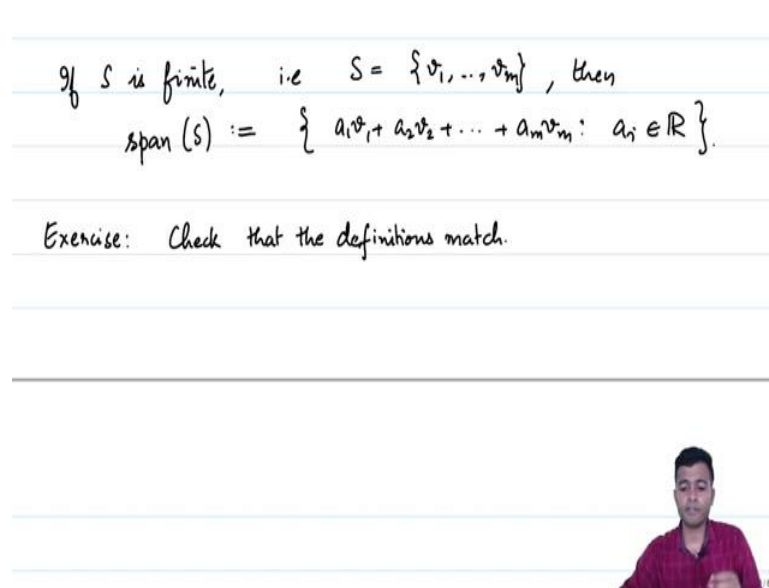 If S is finite, i.e S = {v₁, .., vₘ}, then
span (S) := { a₁v₁ + a₂v₂ + ... + aₘvₘ : aᵢ ∈ ℝ }.
Exercise: Check that the definitions match.